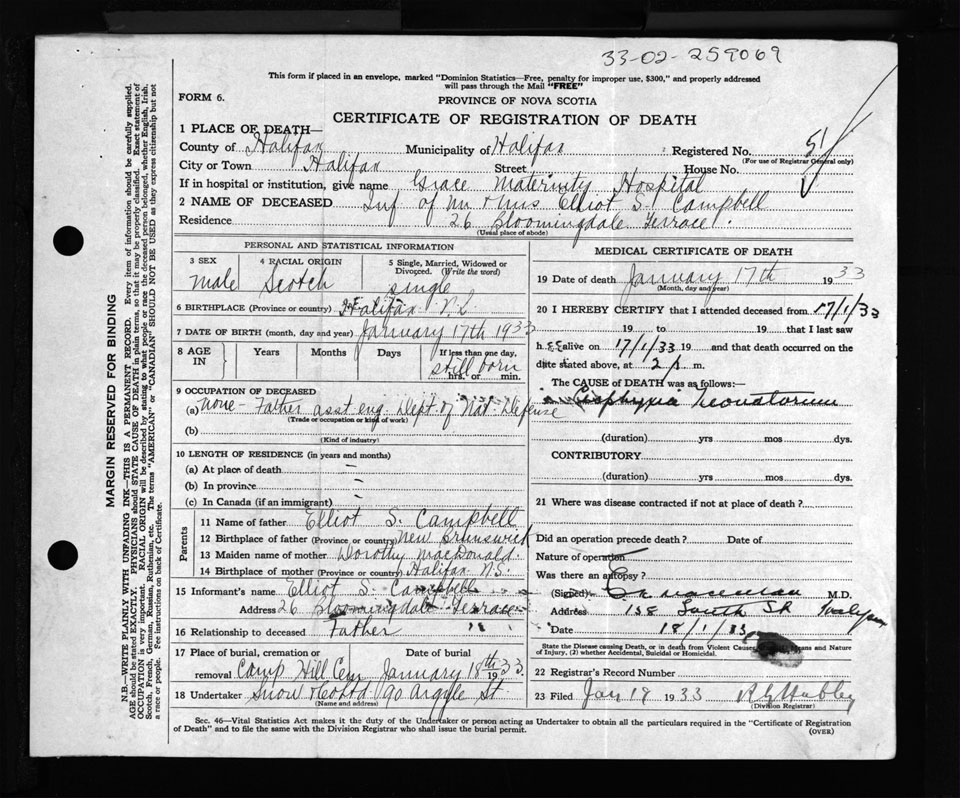 33-02-259069
This form if placed in an envelope, marked "Dominion Statistics—Free, penalty for improper use, $300," and properly addressed
will pass through the Mail "FREE"
FORM 6.
PROVINCE OF NOVA SCOTIA
CERTIFICATE OF REGISTRATION OF DEATH
1 PLACE OF DEATH—
County of Halifax Municipality of Halifax Registered No. 51
(For use of Registrar General only)
City or Town Halifax Street House No.
If in hospital or institution, give name Grace Maternity Hospital
2 NAME OF DECEASED Inf of Mr & Mrs Elliot S. Campbell
Residence 26 Bloomingdale Terrace.
(Usual place of abode)
PERSONAL AND STATISTICAL INFORMATION
3 SEX 4 RACIAL ORIGIN 5 Single, Married, Widowed or
Divorced. (Write the word)
male Scotch single
6 BIRTHPLACE (Province or country) Halifax N.S.
7 DATE OF BIRTH (month, day and year) January 17th 1933
8 AGE IN Years Months Days If less than one day,
still born
hrs. or min.
9 OCCUPATION OF DECEASED
(a) none - Father asst eng. Dept of Nat. Defense
(Trade or occupation or kind of work)
(b)
(Kind of industry)
10 LENGTH OF RESIDENCE (in years and months)
(a) At place of death —
(b) In province —
(c) In Canada (if an immigrant) —
Parents
11 Name of father Elliot S. Campbell
12 Birthplace of father (Province or country) New Brunswick
13 Maiden name of mother Dorothy MacDonald.
14 Birthplace of mother (Province or country) Halifax N.S.
15 Informant's name Elliot S. Campbell
Address 26 Bloomingdale Terrace
16 Relationship to deceased Father
17 Place of burial, cremation or Date of burial
removal Camp Hill Cem January 18th 1933.
18 Undertaker Snow & Co Ltd 90 Argyle St.
(Name and address)
MEDICAL CERTIFICATE OF DEATH
19 Date of death January 17th 1933
(Month, day and year)
20 I HEREBY CERTIFY that I attended deceased from 17/1/33
19 to 19 that I last saw
h alive on 17/1/33 19 and that death occurred on the
date stated above, at m.
The CAUSE OF DEATH was as follows:—
Asphyxia Neonatorum
(duration) yrs mos dys.
CONTRIBUTORY
(duration) yrs mos dys.
21 Where was disease contracted if not at place of death?
Did an operation precede death? Date of
Nature of operation
Was there an autopsy?
(Signed) M.D.
Address 158 South St Halifax
Date 18/1/33
State the Disease causing Death, or in death from Violent Causes, Means and Nature
of Injury, (2) whether Accidental, Suicidal or Homicidal.
22 Registrar's Record Number
23 Filed Jan 18 1933
(Division Registrar)
Sec. 46—Vital Statistics Act makes it the duty of the Undertaker or person acting as Undertaker to obtain all the particulars required in the "Certificate of Registration
of Death" and to file the same with the Division Registrar who shall issue the burial permit.
(OVER)
MARGIN RESERVED FOR BINDING
N.B.—WRITE PLAINLY WITH UNFADING INK—THIS IS A PERMANENT RECORD. Every item of information should be carefully supplied.
AGE should be stated EXACTLY. PHYSICIANS should STATE CAUSE OF DEATH in plain terms, so that it may be properly classified. Exact statement of
OCCUPATION is very important. RACIAL ORIGIN will be described by stating to what people or race the deceased person belonged, whether English, Irish,
Scotch, French, German, Russian, Ruthenian, etc. The terms "AMERICAN" or "CANADIAN" SHOULD NOT BE USED as they express citizenship but not
a race or people. See instructions on back of Certificate.